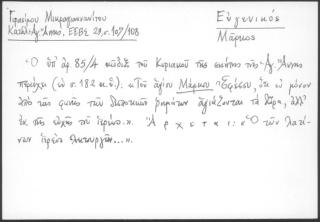 Γερασίμου Μικραγιαννανίτου
Κατάλ. Αγ. Άννης, ΕΕΒΣ 29, σ. 107/108
Εὐγενικός
Μάρκος
Ὁ ὑπ' ἀρ. 85/4 κῶδιξ τοῦ Κυριακοῦ τῆς σκήτης τῆς Ἁγ. Ἄννης
περιέχει (ἐν σ. 182 κ.ἑ.): «Τοῦ ἁγίου Μάρκου Ἐφέσου, ὅτι οὐ μόνον
ἀπὸ τῆς φωνῆς τῶν δεσποτικῶν ῥημάτων ἁγιάζονται τὰ δῶρα, ἀλλ'
ἐκ τῆς εὐχῆς τοῦ ἱερέως.». Ἄρχεται: «Ὁ τῶν λατί-
νων ἱερεὺς λειτουργῶν...».